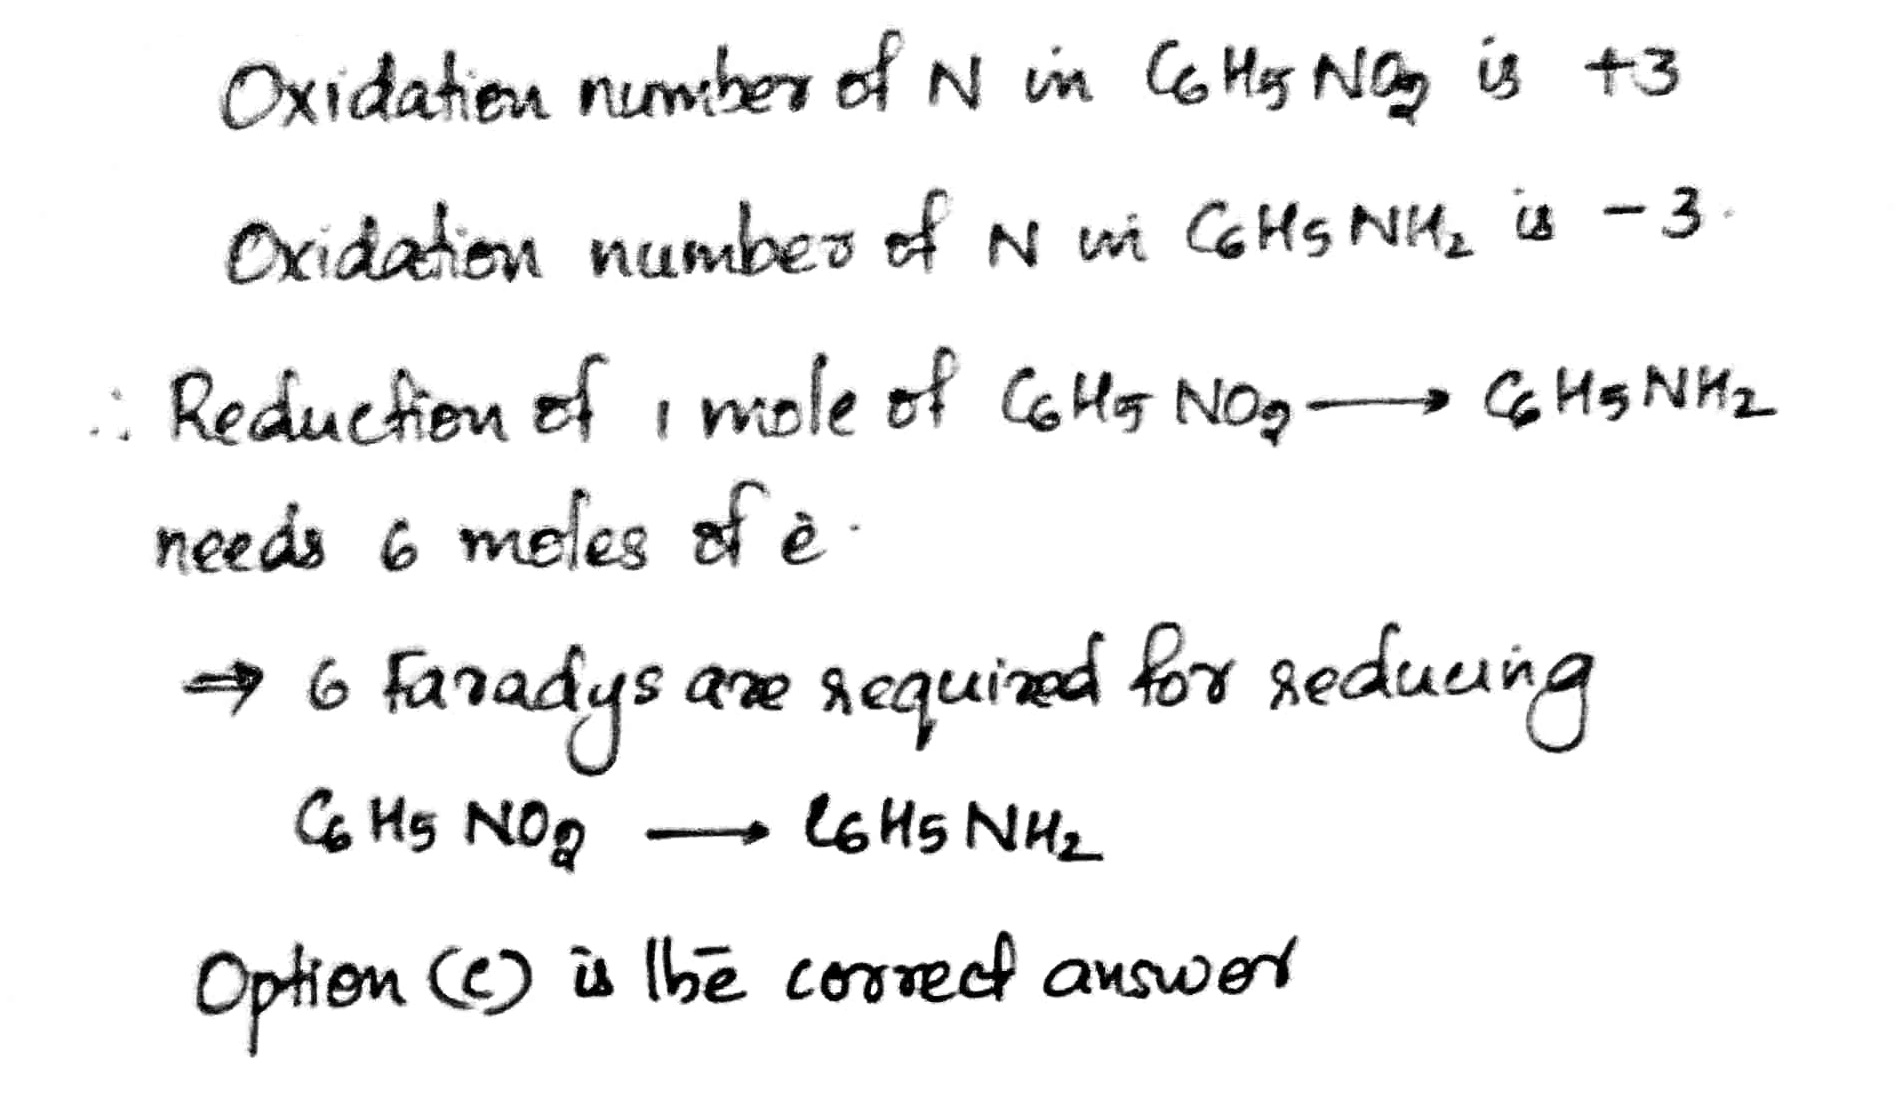 Oxidation number of N in C6H5NO2 is +3
Oxidation number of N in C6H5NH2 is -3.
∴ Reduction of 1 mole of C6H5NO2 → C6H5NH2
needs 6 moles of e-.
⇒ 6 Faradys are required for reducing
C6H5NO2 → C6H5NH2
Option (c) is the correct answer